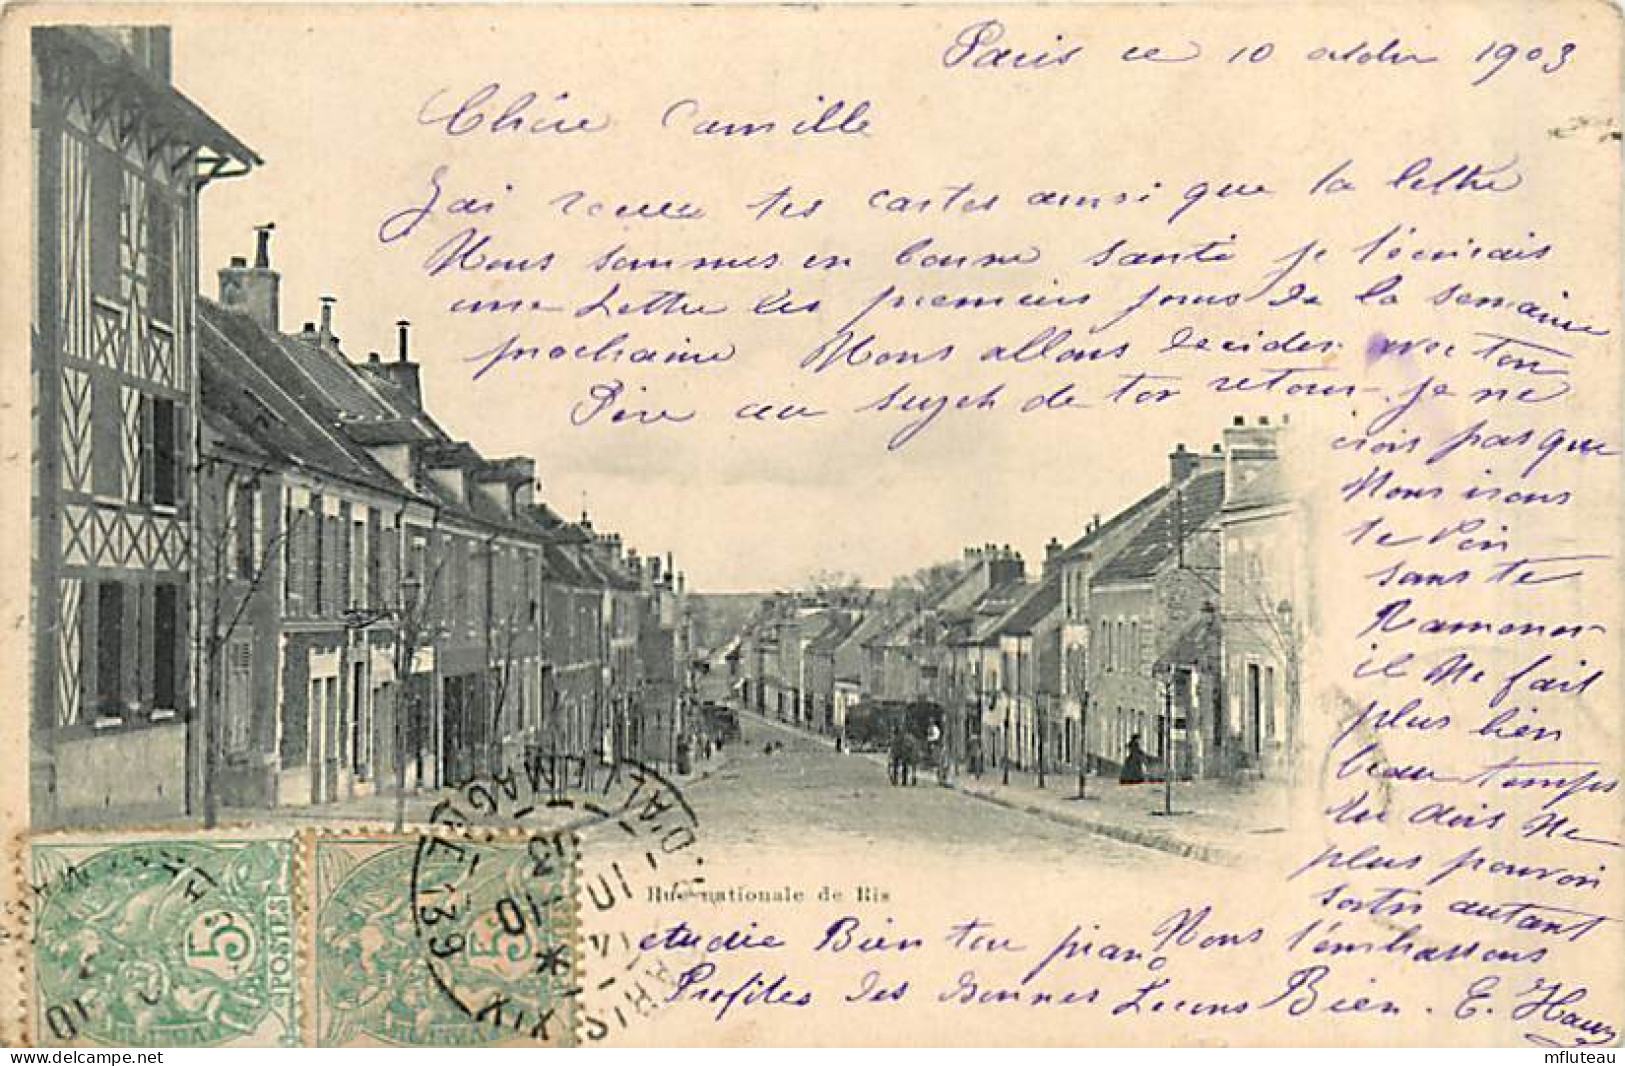 Paris ce 10 octobre 1903
Chère Camille
J'ai recue tes cartes ainsi que ta lettre
Nous sommes en bonne santé je t'écrirais
une Lettre les premiers jours de la semaine
prochaine Nous allons decider avec ton
Père au sujet de ton retour. je ne
crois pas que
Nous irons
te Voir
sans te
Ramener
il Ne fait
plus bien
beau temps
tu dois Ne
plus pouvoir
sortir autant
Rue nationale de Ris
etudie Bien ton piano Nous t'embrassons
Profites des bonnes Leçons Bien. E. Haun
5c
POSTES
5c
POSTES
PARIS XIV
R. D'ALEMAGNE 139
13
10-10
mfluteau